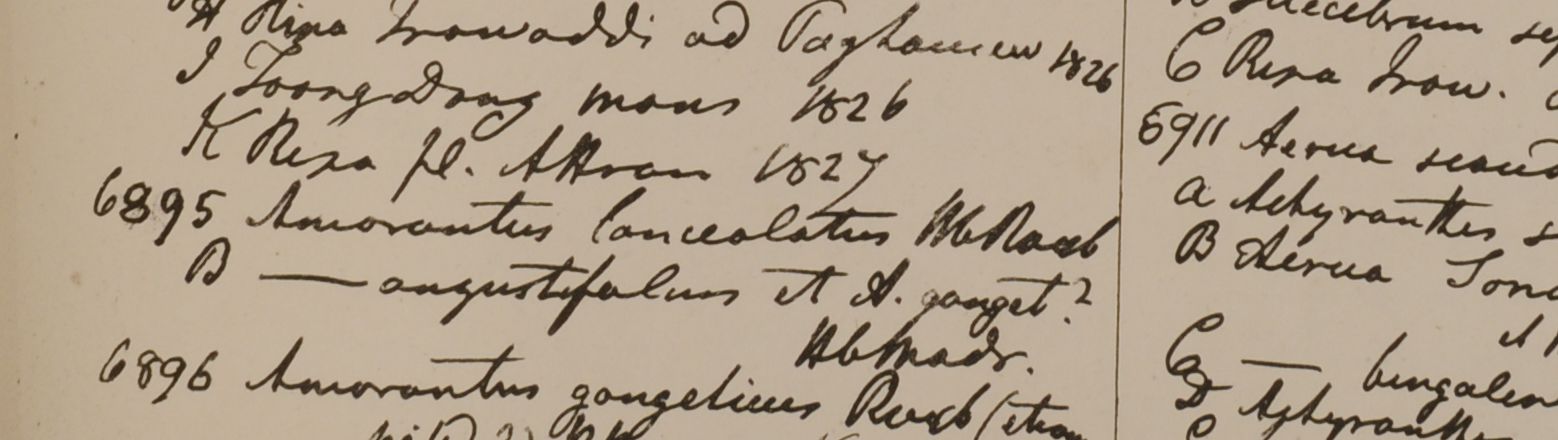 H Ripa Irawaddi ad Paghamew 1826
I Toong Dong mons 1826
K Ripa fl. Attran 1827
6895 Amarantus lanceolatus Hb Roxb
B — angustifolius et A. ganget?
Hb Madr.
6896 Amarantus gangeticus Roxb (etiam
C Ripa Iraw.
6911 Aerua scand
a Achyranthes s
B Aerua
C — bengalen
D Achyranth